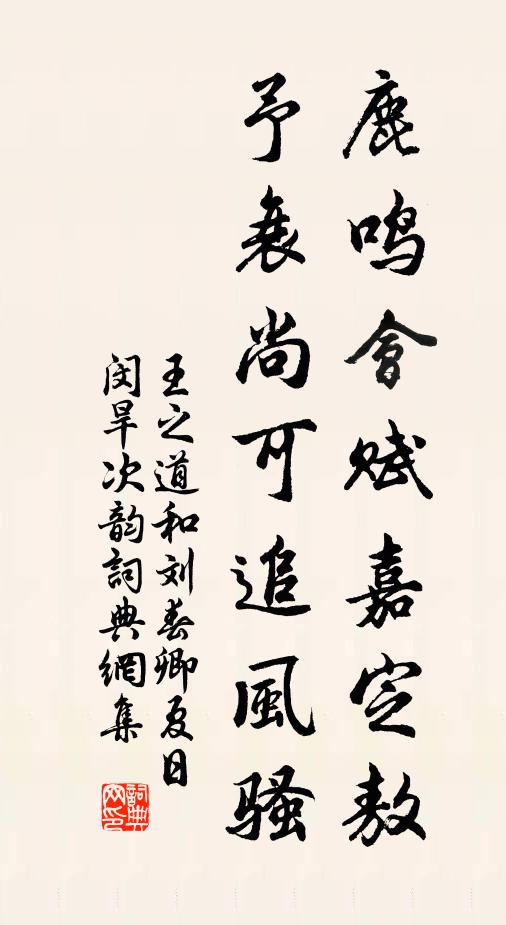 鹿鸣會赋嘉定敖
予衰尚可追風骚
王之道和刘春卿夏日
闵旱次韵詞典網集
詞典网印